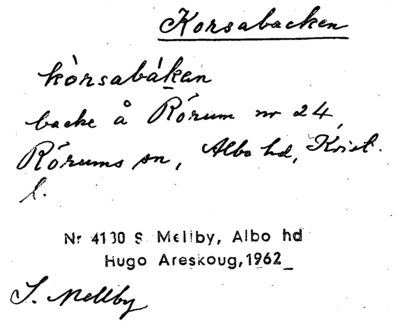 Korsabacken
kòrsabákan
backe å Rörum nr 24,
Rörums sn, Albo hd, Krist.
l.
Nr 4130 S. Mellby, Albo hd
Hugo Areskoug, 1962
S. Mellby